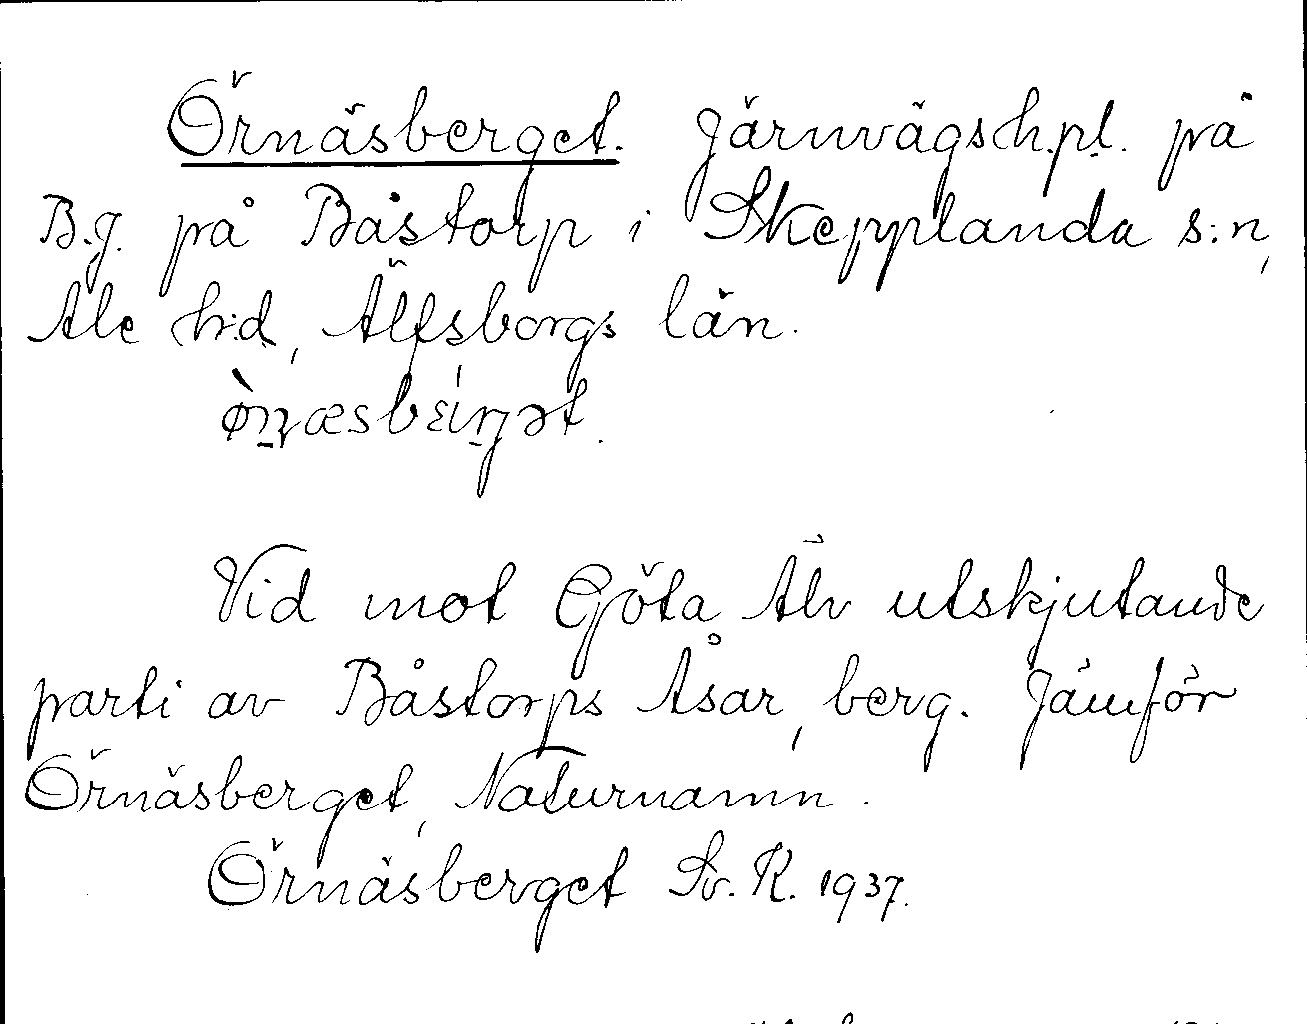 Örnäsberget. Järnvägsh.pl. på
B.J. på Båstorp i Skepplanda s:n,
Ale h:d, Älfsborgs län.
Vid mot Göta Älv utskjutande
parti av Båstorps Åsar, berg. Jämför
Örnäsberget, Naturnamn.
Örnäsberget Sv. K. 1937.